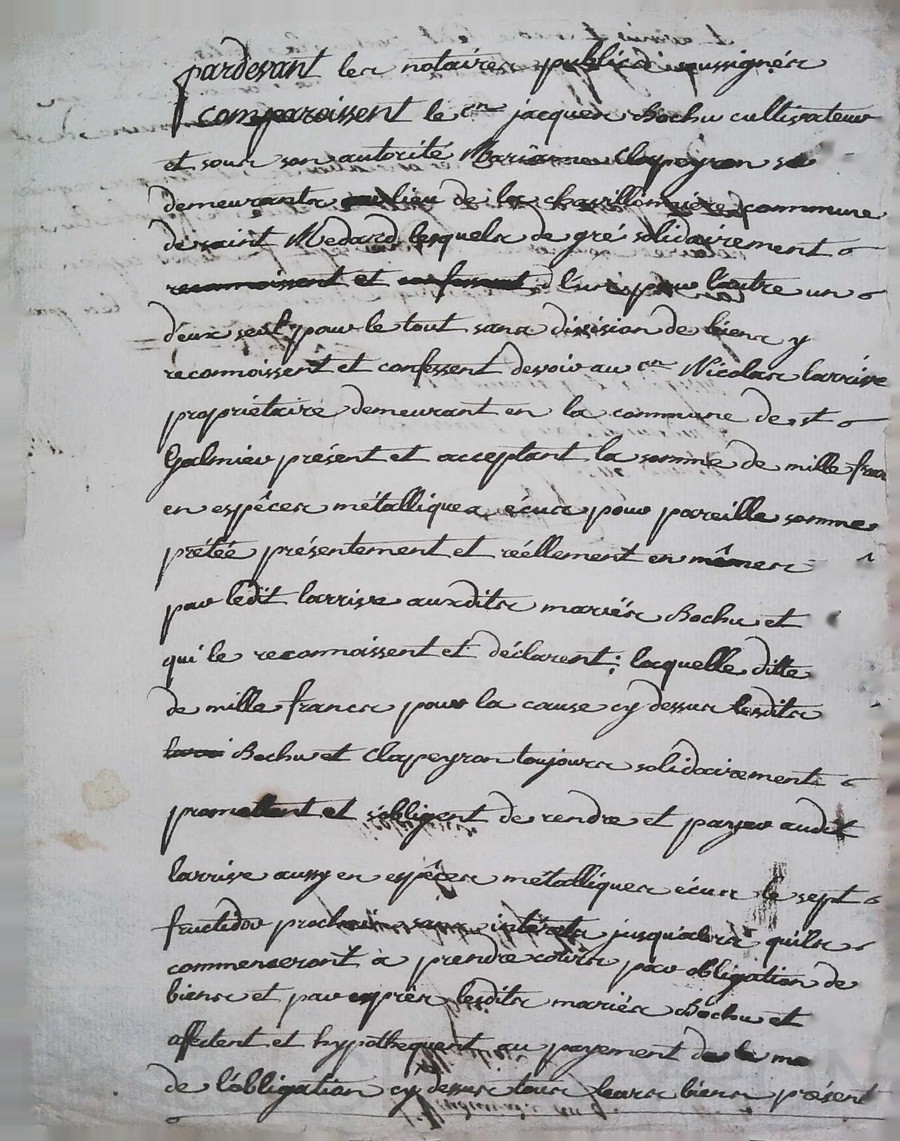 pardevant les notaires publics soussignés
comparoissent le cen jacques Bochu cultivateur
et sous son autorité Marianne Clapeyron sa
demeurants au lieu de la commune
de saint Medard lesquels de gré solidairement
reconnoissent et confessent l'un pour l'autre un
d'eux seul pour le tout sans division de biens y
reconnoissent et confessent devoir au cen Nicolas larrive
propriétaire demeurant en la commune de st
Galmier présent et acceptant la somme de mille francs
en espêces métalliques écus pour pareille somme
prétée présentement et réellement en mêmes
par ledit larrive auxdits mariés Bochu et
qui le reconnoissent et déclarent ; laquelle ditte
de mille francs pour la cause cy dessus lesdits
Bochu et Clapeyron toujours solidairement
promettent et s'obligent de rendre et payer audit
larrive aussy en espêces métalliques écus le sept
fructidor prochain sans intérets jusqu'alors qu'ils
commenceront à prendre cours par obligation de
biens et par exprès lesdits mariés Bochu et
affectent et hypothequent au payement de le
de l'obligation cy dessus tous leurs biens présent